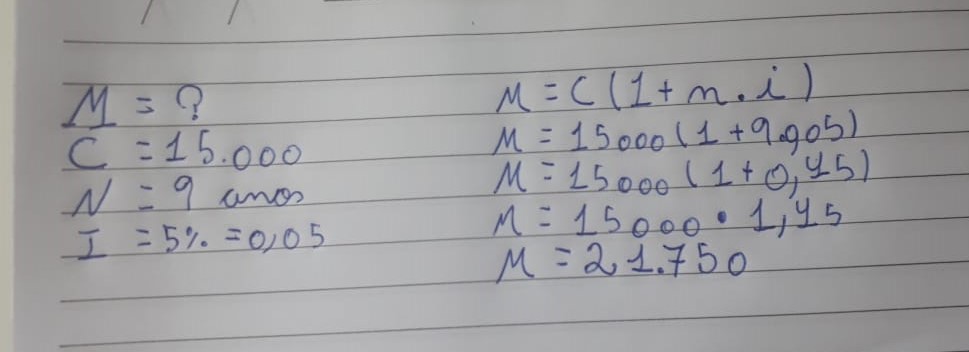 M = ?
C = 15.000
N = 9 anos
I = 5% = 0,05
M = C (1 + n . i)
M = 15000 (1 + 9.005)
M = 15000 (1 + 0,45)
M = 15000 • 1,45
M = 21.750